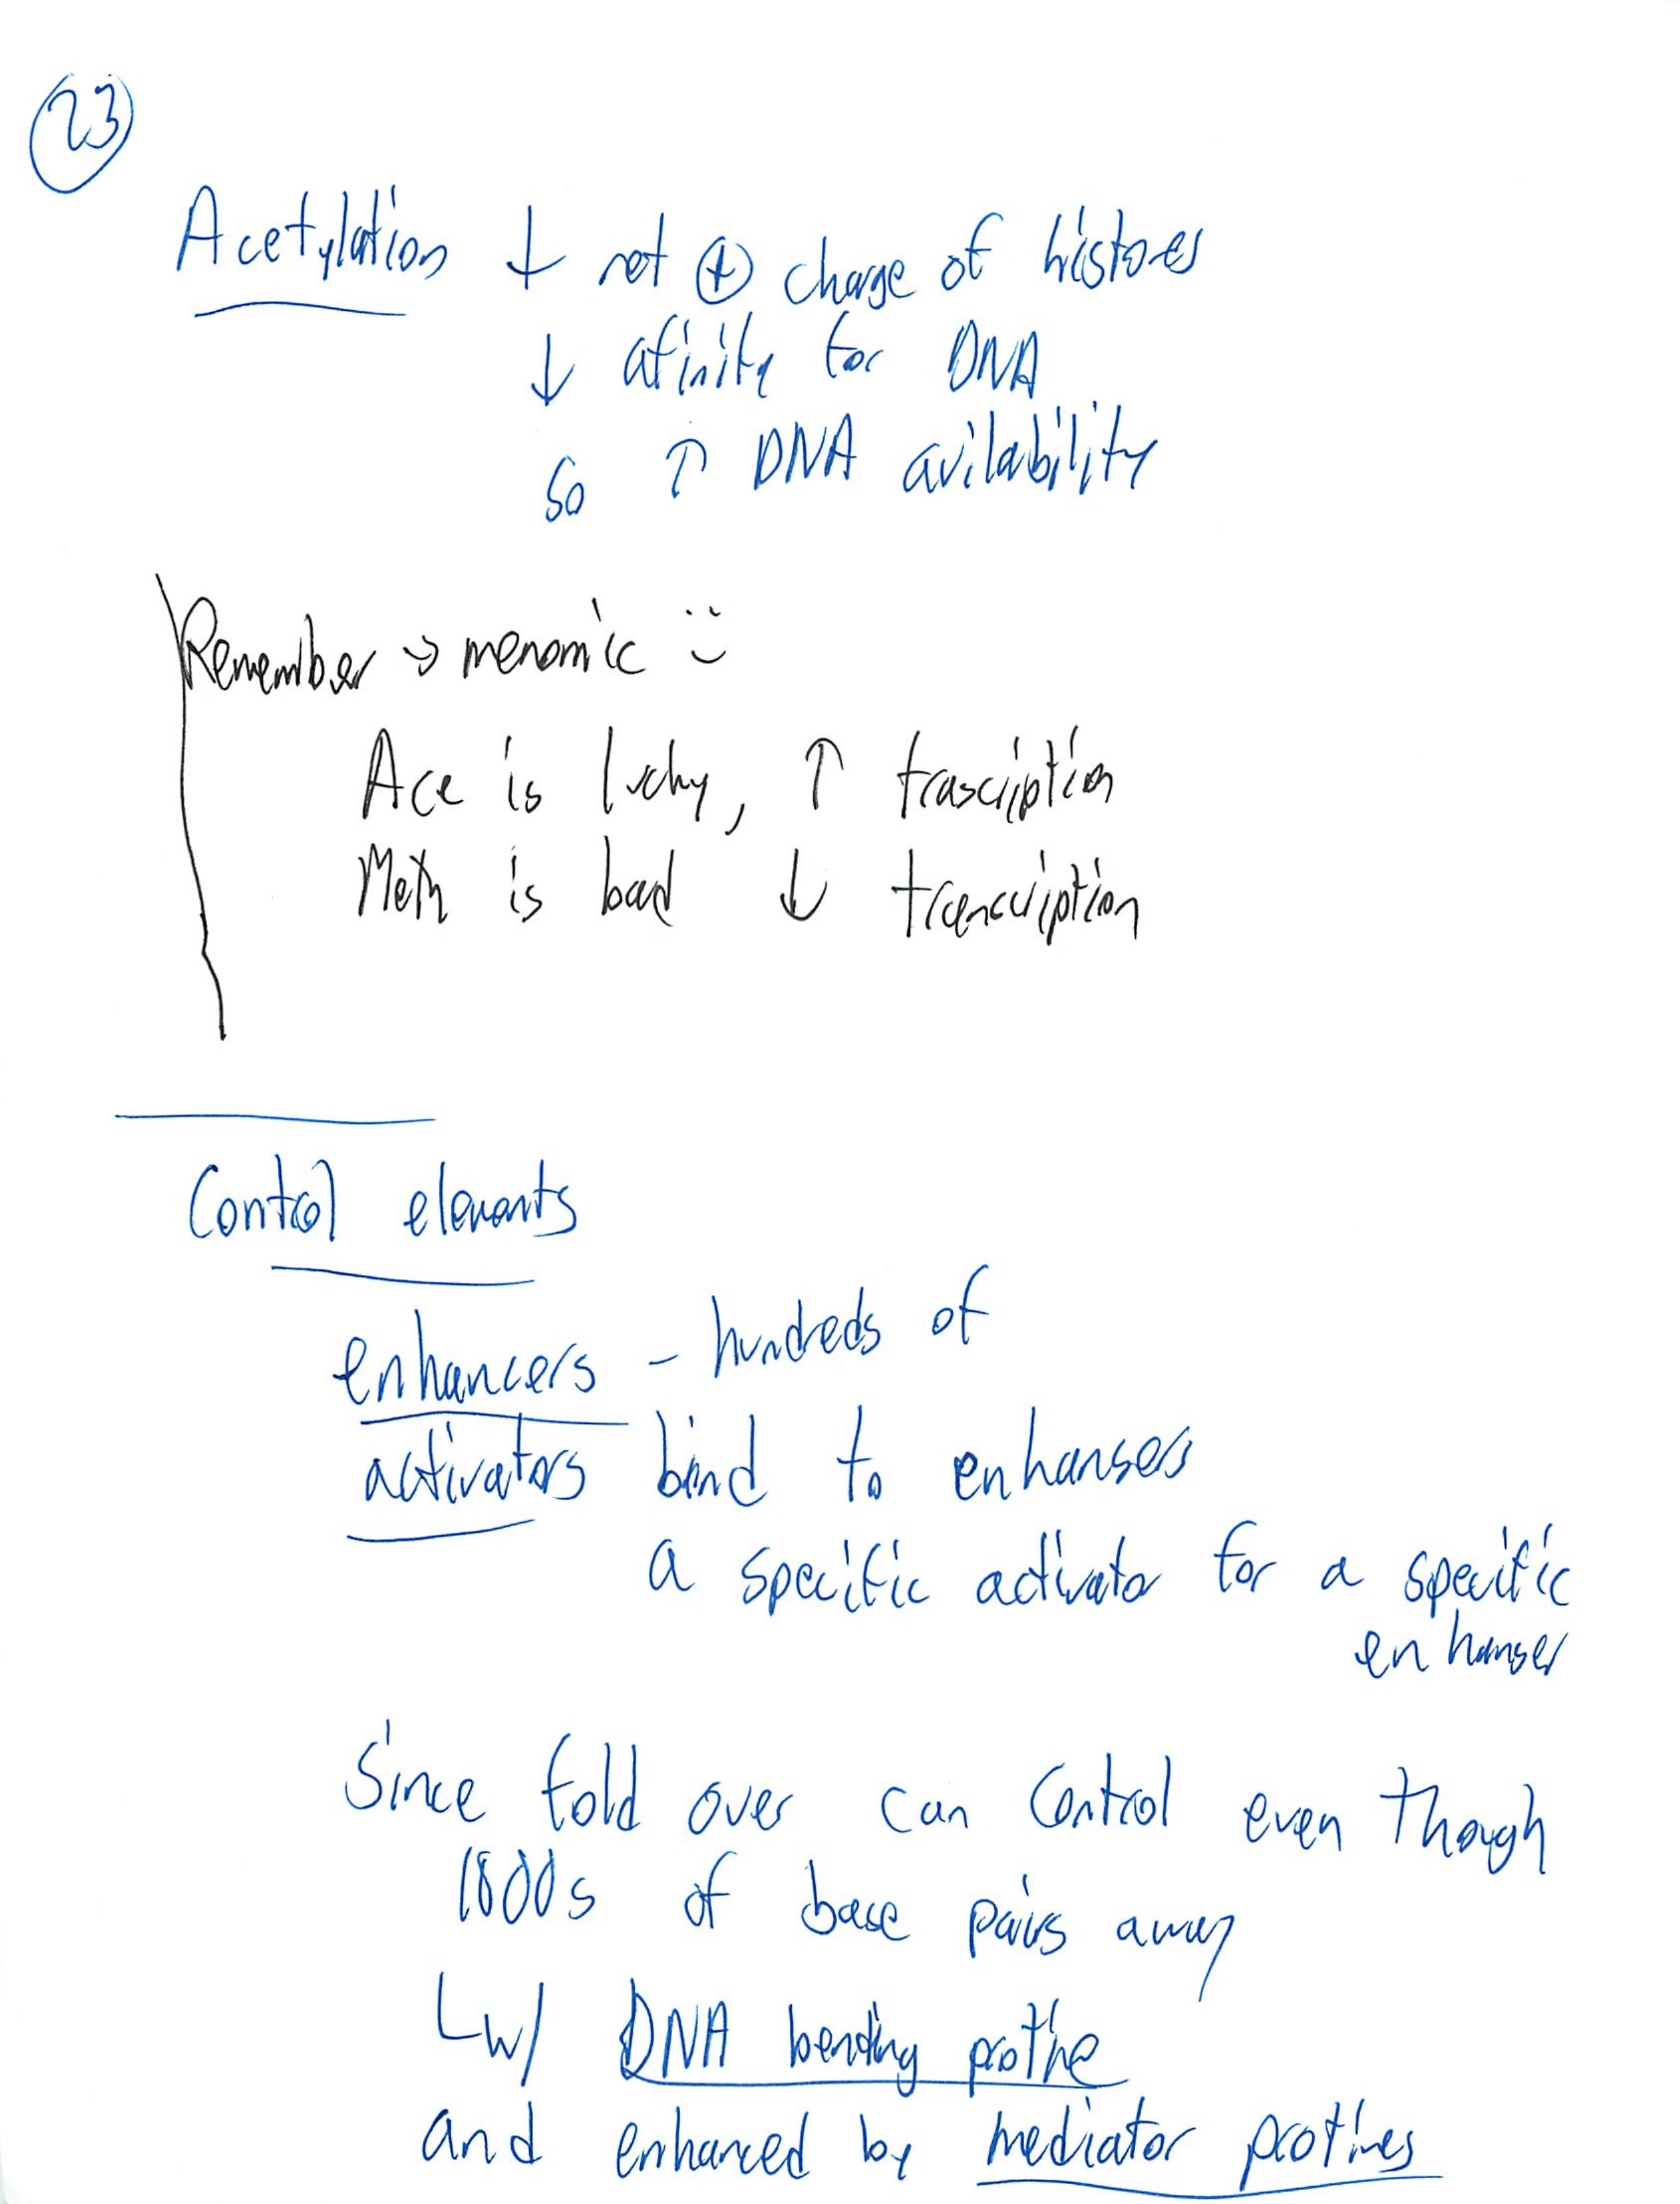 23
Acetylation ↓ net ⊕ charge of histones
↓ afinity for DNA
so ↑ DNA avilability
Remember → menomic :)
Ace is lucky, ↑ trascription
Meth is bad ↓ transcription
Control elements
enhancers - hundreds of
activators bind to enhansers
a specific activator for a specific
enhanser
Since fold over can control even though
1000s of base pairs away
↳ w/ DNA bending protine
and enhanced by mediator protines